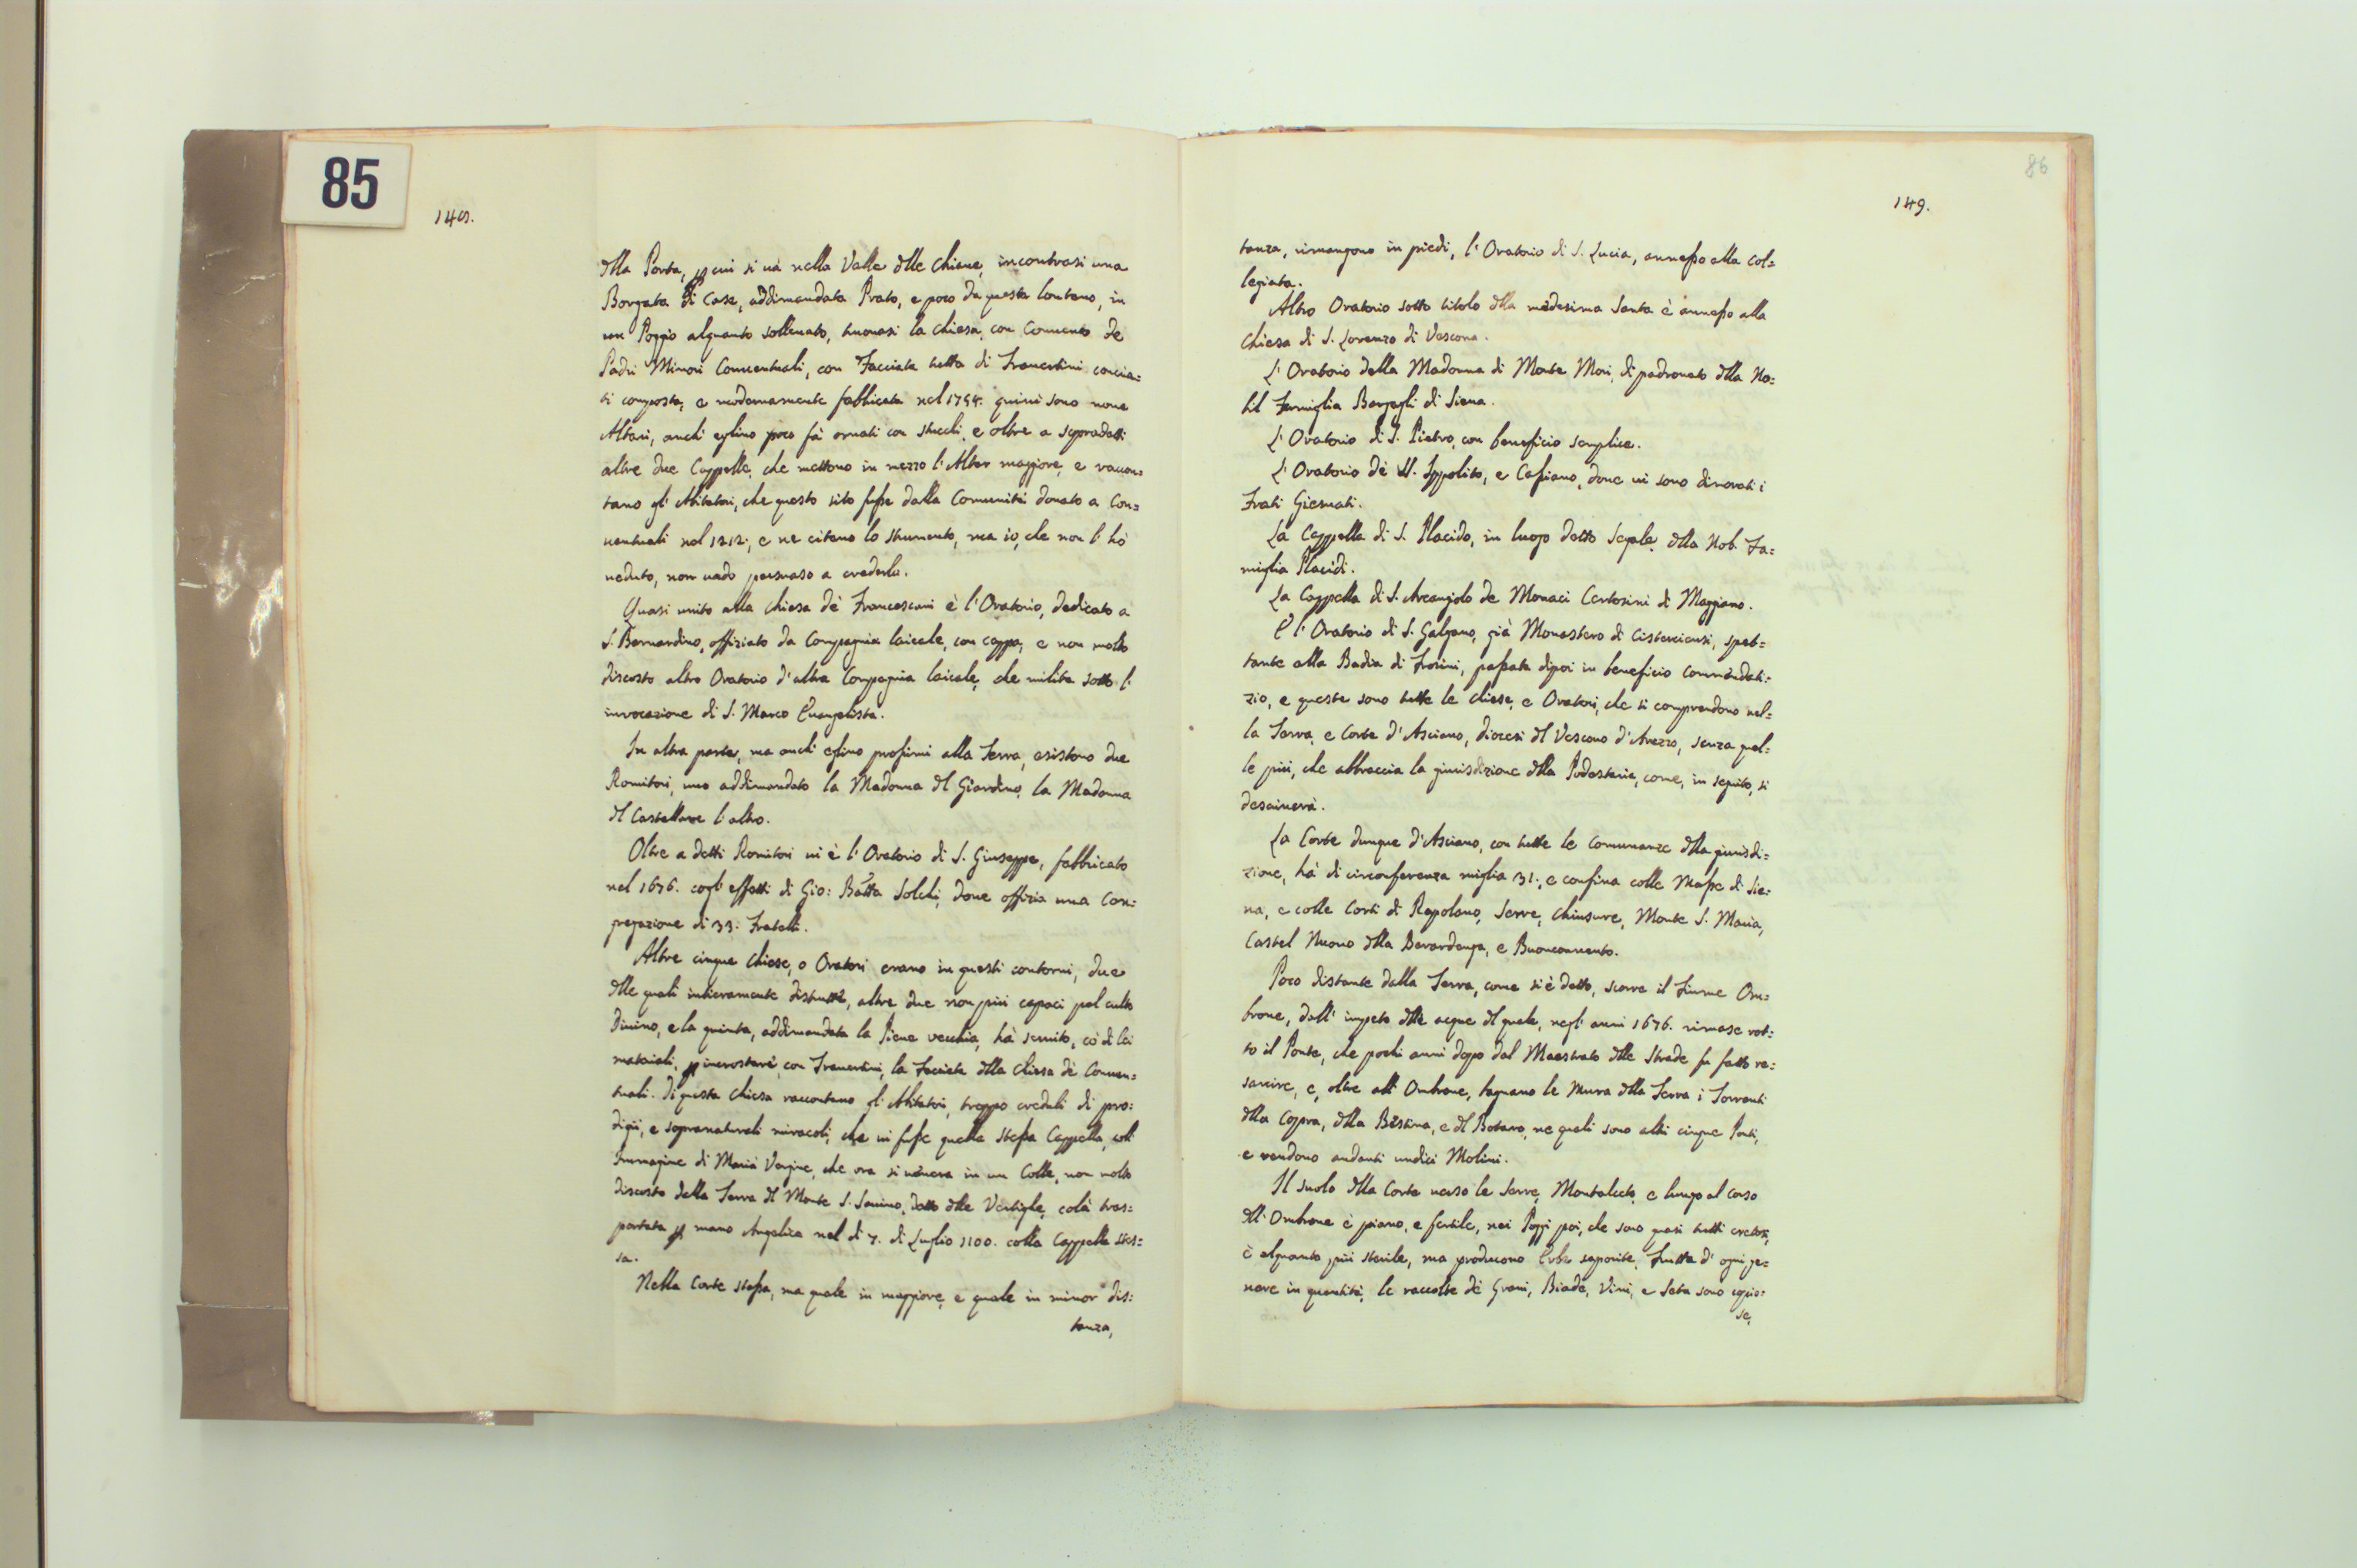 85
148.
dlla Porta, p cui si và nella Valle dlle Chiane, incontrasi una
Borgata di Case, addimandata Prato, e poco da questa lontano, in
un Poggio alquanto sollevato, truovasi la Chiesa, con Convento de
Padri Minori Conventuali, con Facciata tutta di Travertini concia=
ti composta, e modernamente fabbricata nel 1754. quivi sono nove
Altari, anch'eglino poco fà ornati con stucchi, e oltre a sopradetti
altre due Cappelle, che mettono in mezzo l'Altar maggiore, e raccon=
tano gl'Abitatori, che questo sito fusse dalla Comunità donato a Con=
ventuali nel 1212., e ne citano lo strumento, ma io, che non l'hò
veduto, non vado persuaso a crederlo.
Quasi unito alla Chiesa dè Francescani è l'Oratorio, dedicato a
S. Bernardino, offiziato da Compagnia laicale, con cappa, e non molto
discosto altro Oratorio d'altra Compagnia laicale, che milita sotto l'
invocazione di S. Marco Evangelista.
In altra parte, ma anch'eglino prossimi alla Terra, esistono due
Romitori, uno addimandato la Madonna dl Giardino, la Madonna
dl Castellare l'altro.
Oltre a detti Romitori vi è l'Oratorio di S. Giuseppe, fabbricato
nel 1676. cogl'effetti di Gio: Batta Solchi, dove offizia una Con=
gregazione di 33. Fratelli.
Altre cinque Chiese, o Oratori erano in questi contorni, due
dlle quali intieramente distrutte, altre due non più capaci pel culto
Divino, e la quinta, addimandata la Pieve vecchia, hà servito, cò di lei
materiali, p incrostare, con Travertini, la Facciata dlla Chiesa dè Conven=
tuali. Di questa Chiesa raccontano gl'Abitatori, troppo creduli di pro=
digii, e sopranaturali miracoli, che vi fusse quella stessa Cappella, coll'
Immagine di Maria Vergine, che ora si venera in un Colle, non molto
discosto dalla Terra dl Monte S. Savino, detto dlle Vertighe, colà tras=
portata p mano Angelica nel dì 7. di Luglio 1100. colla Cappella stes=
sa.
Nella Corte stessa, ma quale in maggiore, e quale in minor dis=
tanza,
86
149.
tanza, rimangono in piedi, l'Oratorio di S. Lucia, annesso alla Col=
legiata.
Altro Oratorio sotto titolo dlla medesima Santa è annesso alla
Chiesa di S. Lorenzo di Vescona.
L'Oratorio della Madonna di Monte Mori, di padronato dlla No=
bil Famiglia Bargagli di Siena.
L'Oratorio di S. Pietro, con beneficio semplice.
L'Oratorio dè SS. Ippolito, e Cassiano, dove vi sono dimorati i
Frati Giesuati.
La Cappella di S. Placido, in luogo detto Segale, dlla Nob. Fa=
miglia Placidi.
La Cappella di S. Arcangiolo de Monaci Certosini di Maggiano.
E l'Oratorio di S. Galgano, già Monastero di Cisterciensi, spet=
tante alla Badia di Frosini, passata dipoi in beneficio Commendati=
zio, e queste sono tutte le Chiese, e Oratori, che si comprendono nel=
la Terra, e Corte d'Asciano, Diocesi dl Vescovo d'Arezzo, senza quel=
le più, che abbraccia la giurisdizione dlla Podestaria, come, in seguito, si
descriverà.
La Corte dunque d'Asciano, con tutte le Comunanze dlla giurisdi=
zione, hà di circonferenza miglia 31., e confina colle Masse di Sie=
na, e colle Corti di Rapolano, Serre, Chiusure, Monte S. Maria,
Castel Nuovo dlla Berardenga, e Buonconvento.
Poco distante dalla Terra, come si è detto, scorre il Fiume Om=
brone, dall'impeto dlle acque dl quale, negl'anni 1676. rimase rot=
to il Ponte, che pochi anni dopo dal Maestrato dlle Strade fu fatto re=
sarcire, e, oltre all'Ombrone, bagnano le Mura dlla Terra i Torrenti
dlla Copra, dlla Bestina, e dl Bottaro, ne quali sono altri cinque Ponti,
e rendono andanti undici Molini.
Il suolo dlla Corte verso le Serre, Montalceto, e lungo al corso
dll'Ombrone è piano, e fertile, nei Poggi poi, che sono quasi tutti cretosi,
è alquanto più sterile, ma producono Erbe saporite, Frutta d'ogni ge=
nere in quantità, le raccolte di Grani, Biade, Vini, e Seta sono copio=
se,